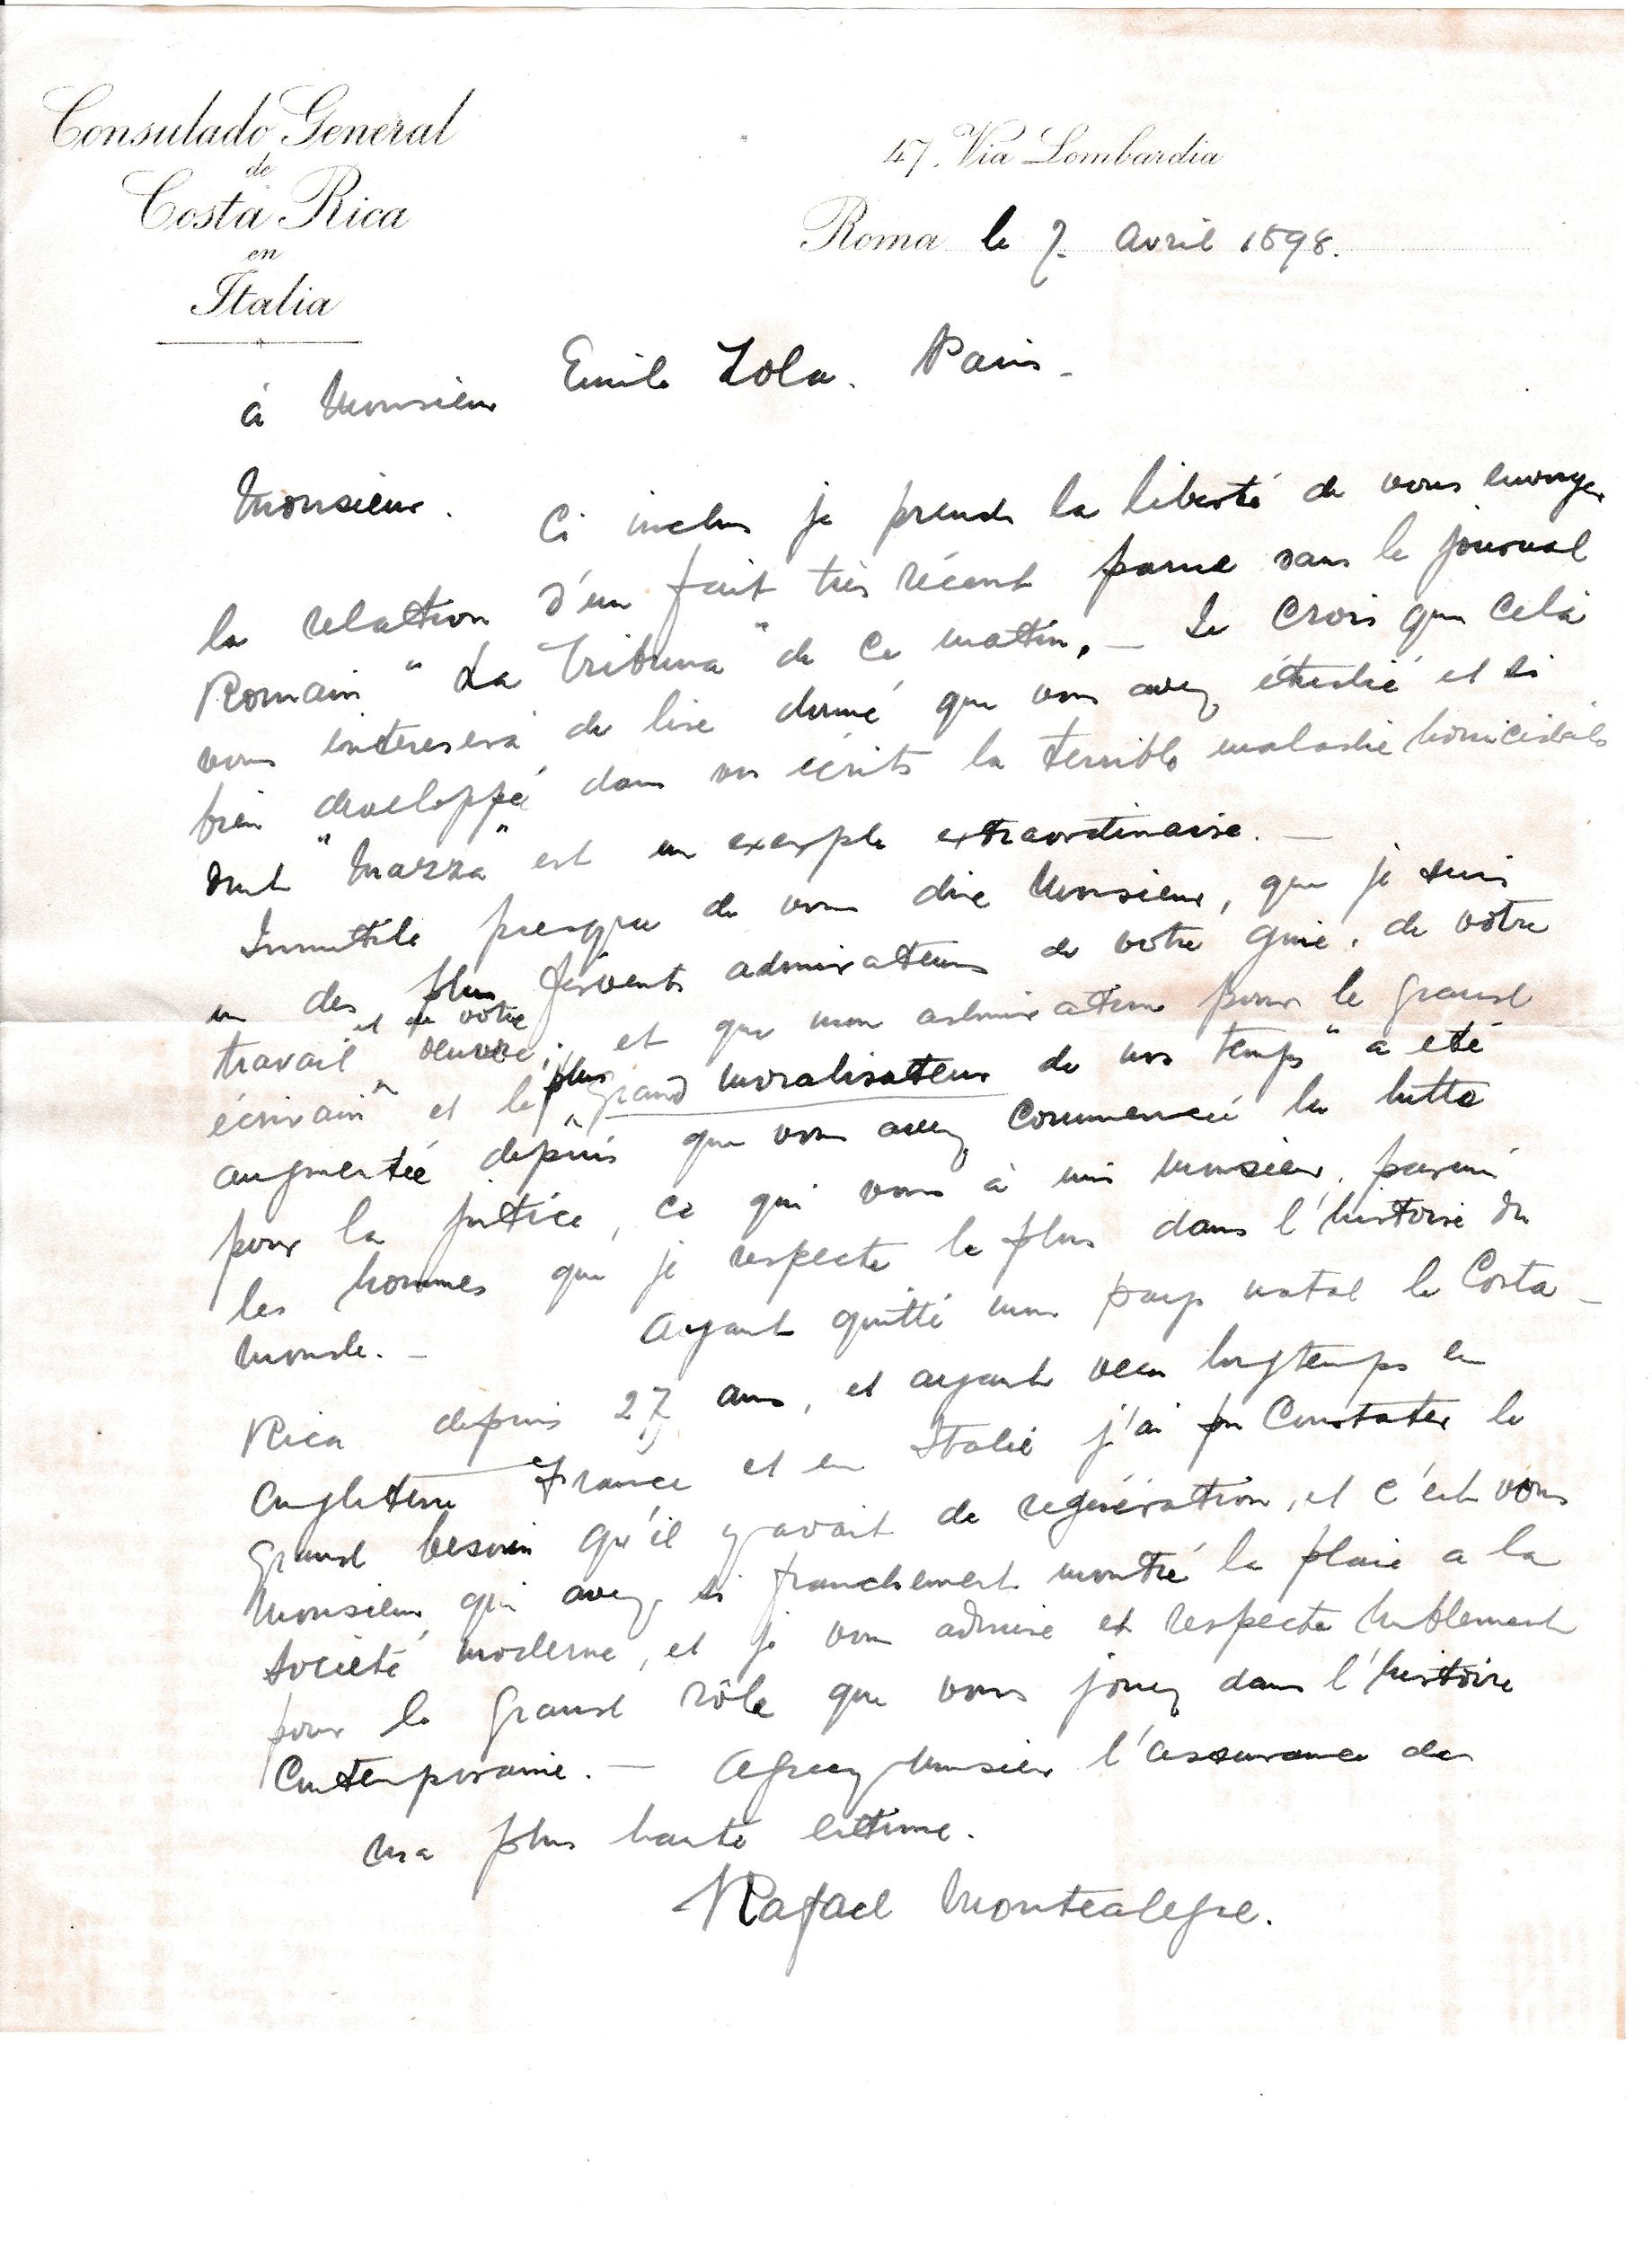 Consulado General
de
Costa Rica
en
Italia
47. Via Lombardia
Roma le 7. Avril 1898.
à Monsieur Emile Zola. Paris_
Monsieur. Ci inclus je prends la liberté de vous envoyer
la relation d'un fait très récent parue dans le journal
Romain "La Tribuna" de ce mattin._ Je crois que celà
vous interesera de lire donné que vous avez étudié et si
bien developpé dans vos écrits la terrible maladie homicidale
dont "Mazza" est un exemple extraordinaire._
Innutile presque de vous dire Monsieur, que je suis
un des plus fervents admirateurs de votre genie, de votre
travail et de votre oeuvre; et que mon admiration pour le grand
écrivain" et le plus "grand moralisateur de nos temps" a eté
augmentée depuis que vous avez commencé la lutte
pour la justice, ce qui vous à mis Monsieur, parmi
les hommes que je respecte le plus dans l'histoire du
monde._ Ayant quitté mon pays natal le Costa_
Rica depuis 27 ans, et ayant vecu longtemps en
Angleterre France et en Italie j'ai pu constater le
grand besoin qu'il y avait de regénération, et c'est vous
Monsieur, qui avez si franchement montré la plaie a la
société moderne, et je vous admire et respecte humblement
pour le grand rôle que vous jouez dans l'histoire
Contemporaine._ Agreez Monsieur l'assurance de
ma plus haute estime.
Rafael Montealegre.